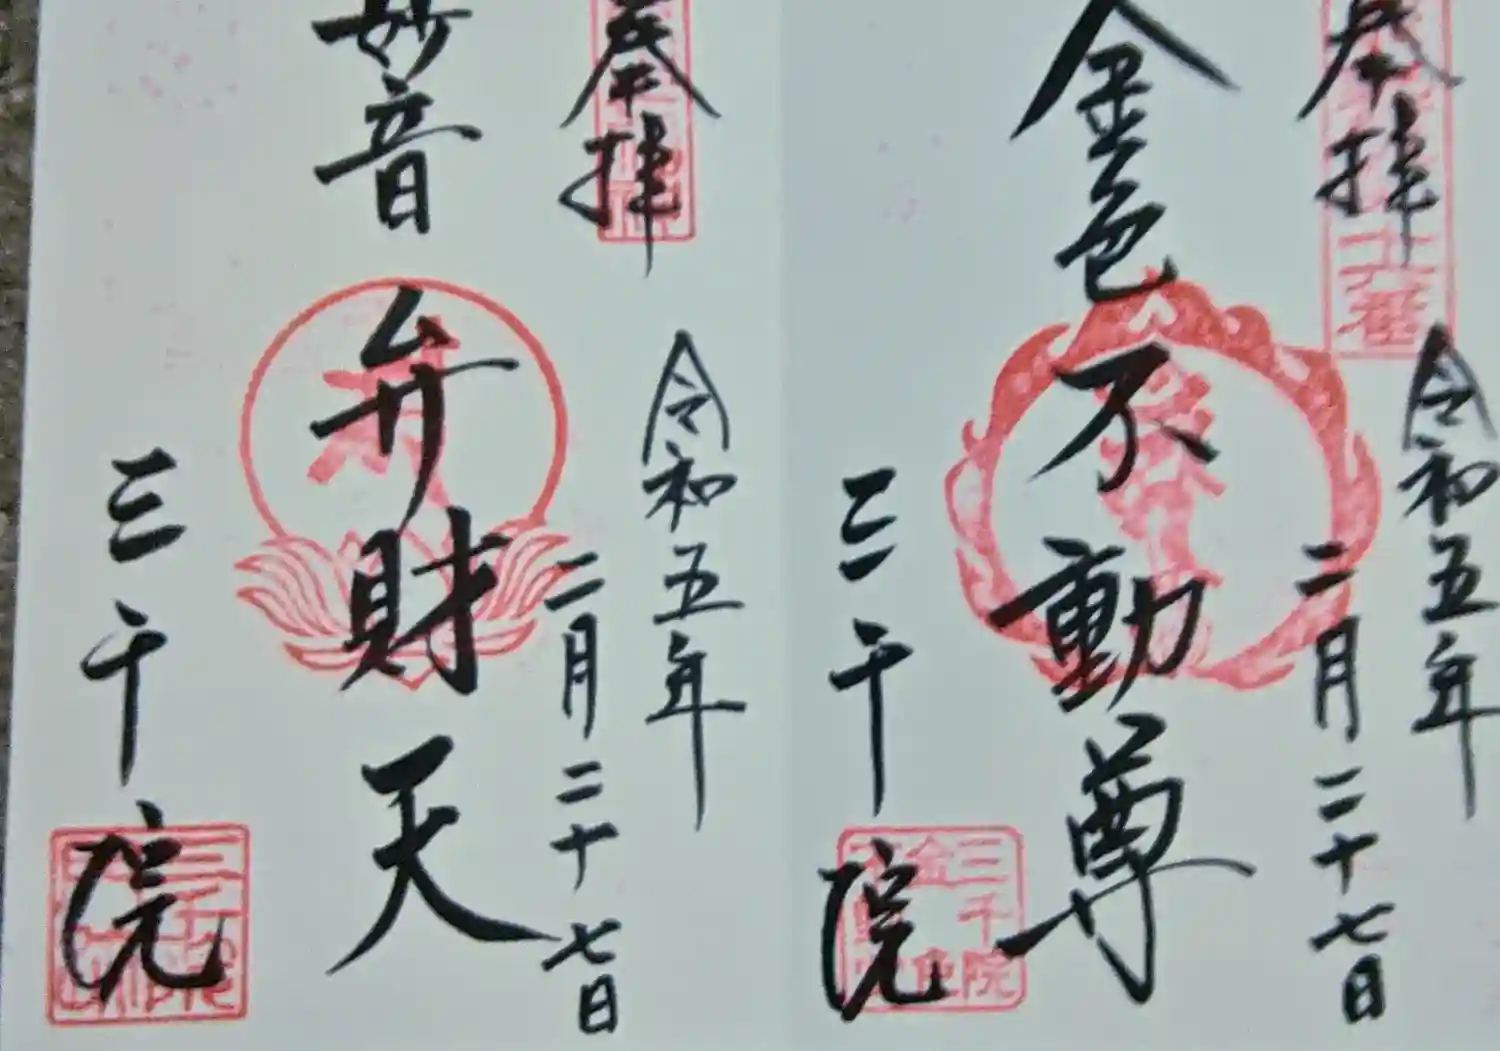 奉拝
令和五年
二月二十七日
金色不動尊
三千院
十六番
三千院
奉拝
令和五年
二月二十七日
妙音
弁財天
三千院